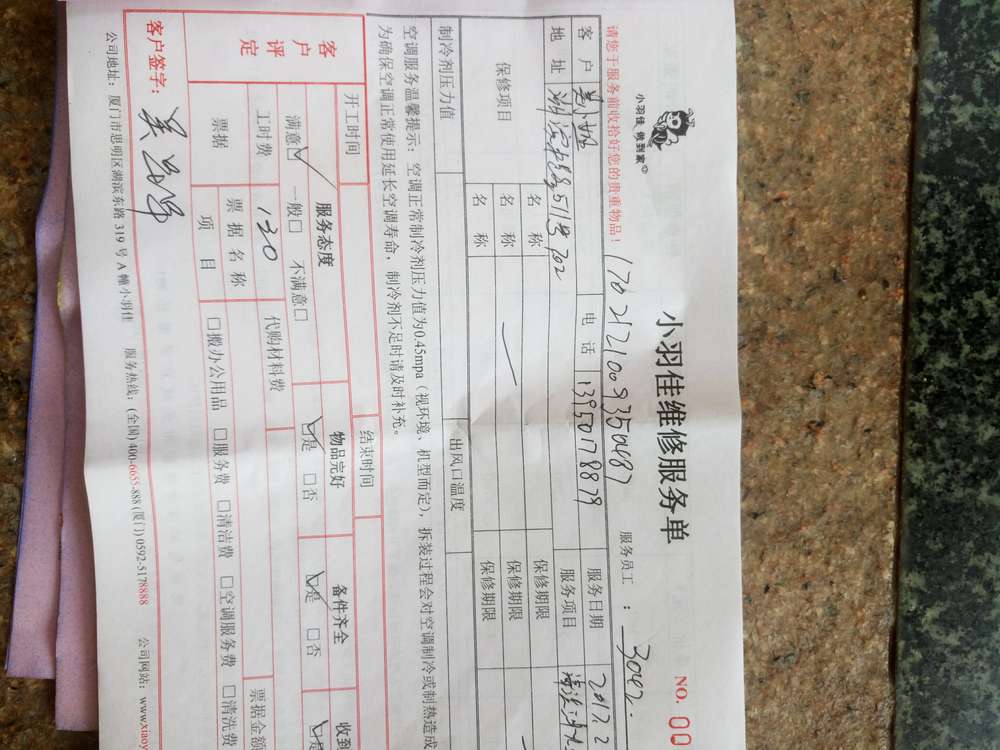 小羽佳 做到家
小羽佳维修服务单
NO. 00
17021210093504​87
服务员工 ： 3042
请您于服务前收拾好您的贵重物品！
客 户
电 话 13950178879
服务日期 2017.2
地 址
511号702
服务项目
保修项目
名 称
保修期限
名 称
保修期限
名 称
保修期限
制冷剂压力值
出风口温度
空调服务温馨提示：空调正常制冷剂压力值为0.45mpa（视环境、机型而定），拆装过程会对空调制冷或制热造成
为确保空调正常使用延长空调寿命，制冷剂不足时请及时补充。
开工时间
结束时间
客户评定
服务态度
物品完好
备件齐全
收到
满意☑ 一般□ 不满意□
☑是 □否
☑是 □否
☑是
工时费 130
代购材料费
票据
票 据 名 称
票据金额
项 目
□搬办公用品 □服务费 □清洁费 □空调服务费 □清洗费
客户签字：
公司地址：厦门市思明区湖滨东路 319 号 A 幢小羽佳 服务热线：(全国) 400-6655-888 (厦门) 0592-5178888 公司网站：www.xiaoy